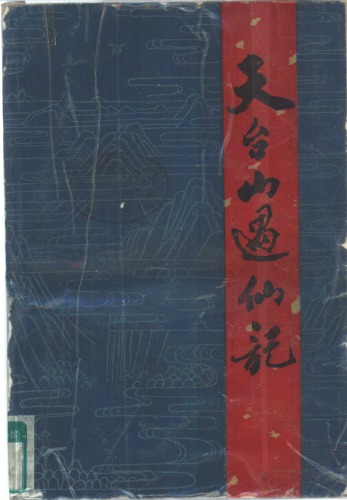 天台山遇仙记